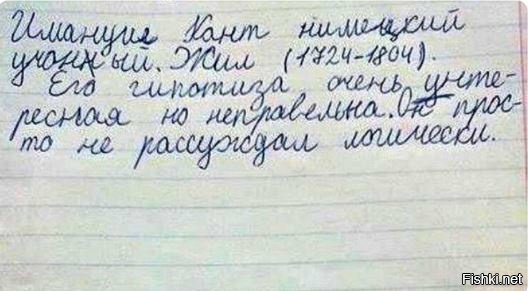 Имануил Кант нимецкий
учонный. Жил (1724-1804).
Его гипотиза очень унте-
ресная но неправельна. Он прос-
то не рассуждал логически.
Fishki.net